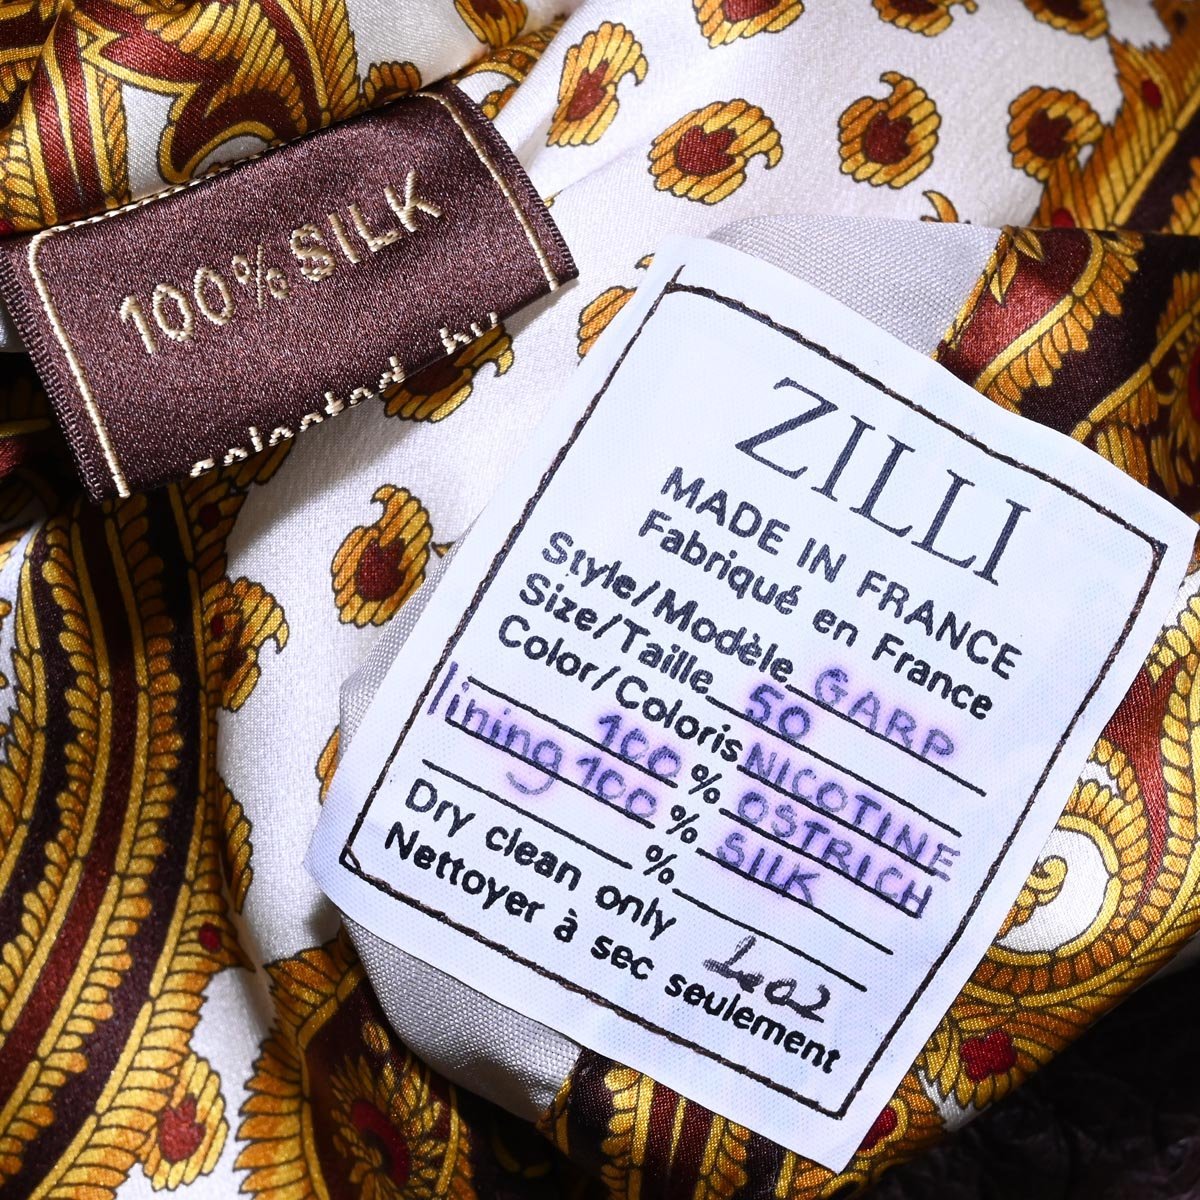 100% SILK
selected by
ZILLI
MADE IN FRANCE
Fabriqué en France
Style/Modèle GARP
Size/Taille 50
Color/Coloris NICOTINE
100 % OSTRICH
lining 100 % SILK
%
Dry clean only
Nettoyer à sec seulement